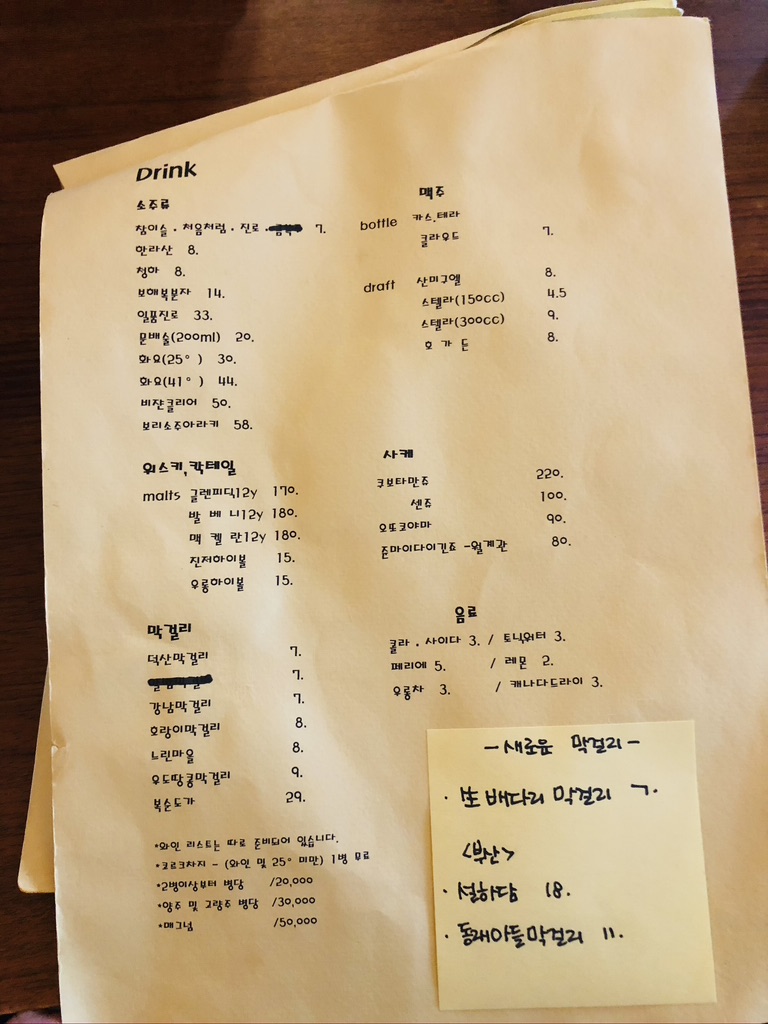 Drink
소주류
참이슬 · 처음처럼 · 진로 · 7.
한라산 8.
청하 8.
보해복분자 14.
일품진로 33.
문배술(200ml) 20.
화요(25°) 30.
화요(41°) 44.
비쟌클리어 50.
보리소주아라키 58.
맥주
bottle 카스.테라
클라우드 7.
draft 산미구엘 8.
스텔라(150cc) 4.5
스텔라(300cc) 9.
호 가 든 8.
위스키,칵테일
malts 글렌피딕12y 170.
발 베 니12y 180.
맥 켈 란12y 180.
진저하이볼 15.
우롱하이볼 15.
사케
쿠보타만쥬 220.
센쥬 100.
오또코야마 90.
준마이다이긴죠 -월계관 80.
막걸리
덕산막걸리 7.
7.
강남막걸리 7.
호랑이막걸리 8.
느린마을 8.
우도땅콩막걸리 9.
복순도가 29.
음료
콜라 . 사이다 3. / 토닉워터 3.
페리에 5. / 레몬 2.
우롱차 3. / 캐나다드라이 3.
*와인 리스트는 따로 준비되어 있습니다.
*코르크차지 - (와인 및 25° 미만) 1병 무료
*2병이상부터 병당 /20,000
*양주 및 고량주 병당 /30,000
*매그넘 /50,000
-새로운 막걸리-
· 生 배다리 막걸리 7.
<부산>
· 설하담 18.
· 동래아들막걸리 11.